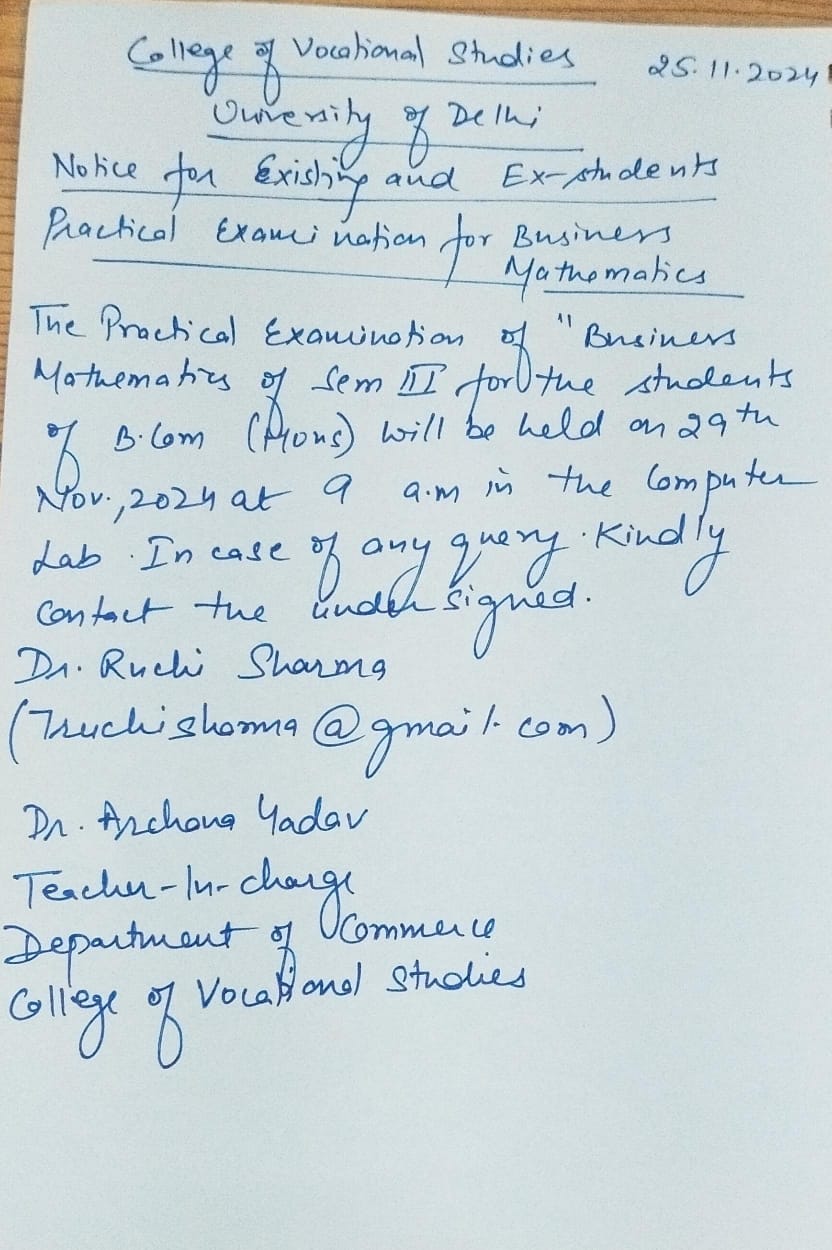 College of Vocational Studies 25.11.2024
University of Delhi
Notice for Existing and Ex-students
Practical Examination for Business
Mathematics
The Practical Examination of "Business
Mathematics of Sem III for the students
of B.Com (Hons) will be held on 29th
Nov., 2024 at 9 a.m in the Computer
Lab. In case of any query. Kindly
Contact the undersigned.
Dr. Ruchi Sharma
(7ruchisharma@gmail.com)
Dr. Archana Yadav
Teacher-In-charge
Department of Commerce
College of Vocational Studies